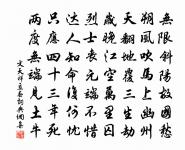 無限斜陽故國愁
朔風吹馬上幽州
天翻地覆三生劫
歲晚江空萬里囚
烈士喪元
達人知命復何
只應四十三年死
兩度無端見土牛
文天祥立春詞典網書